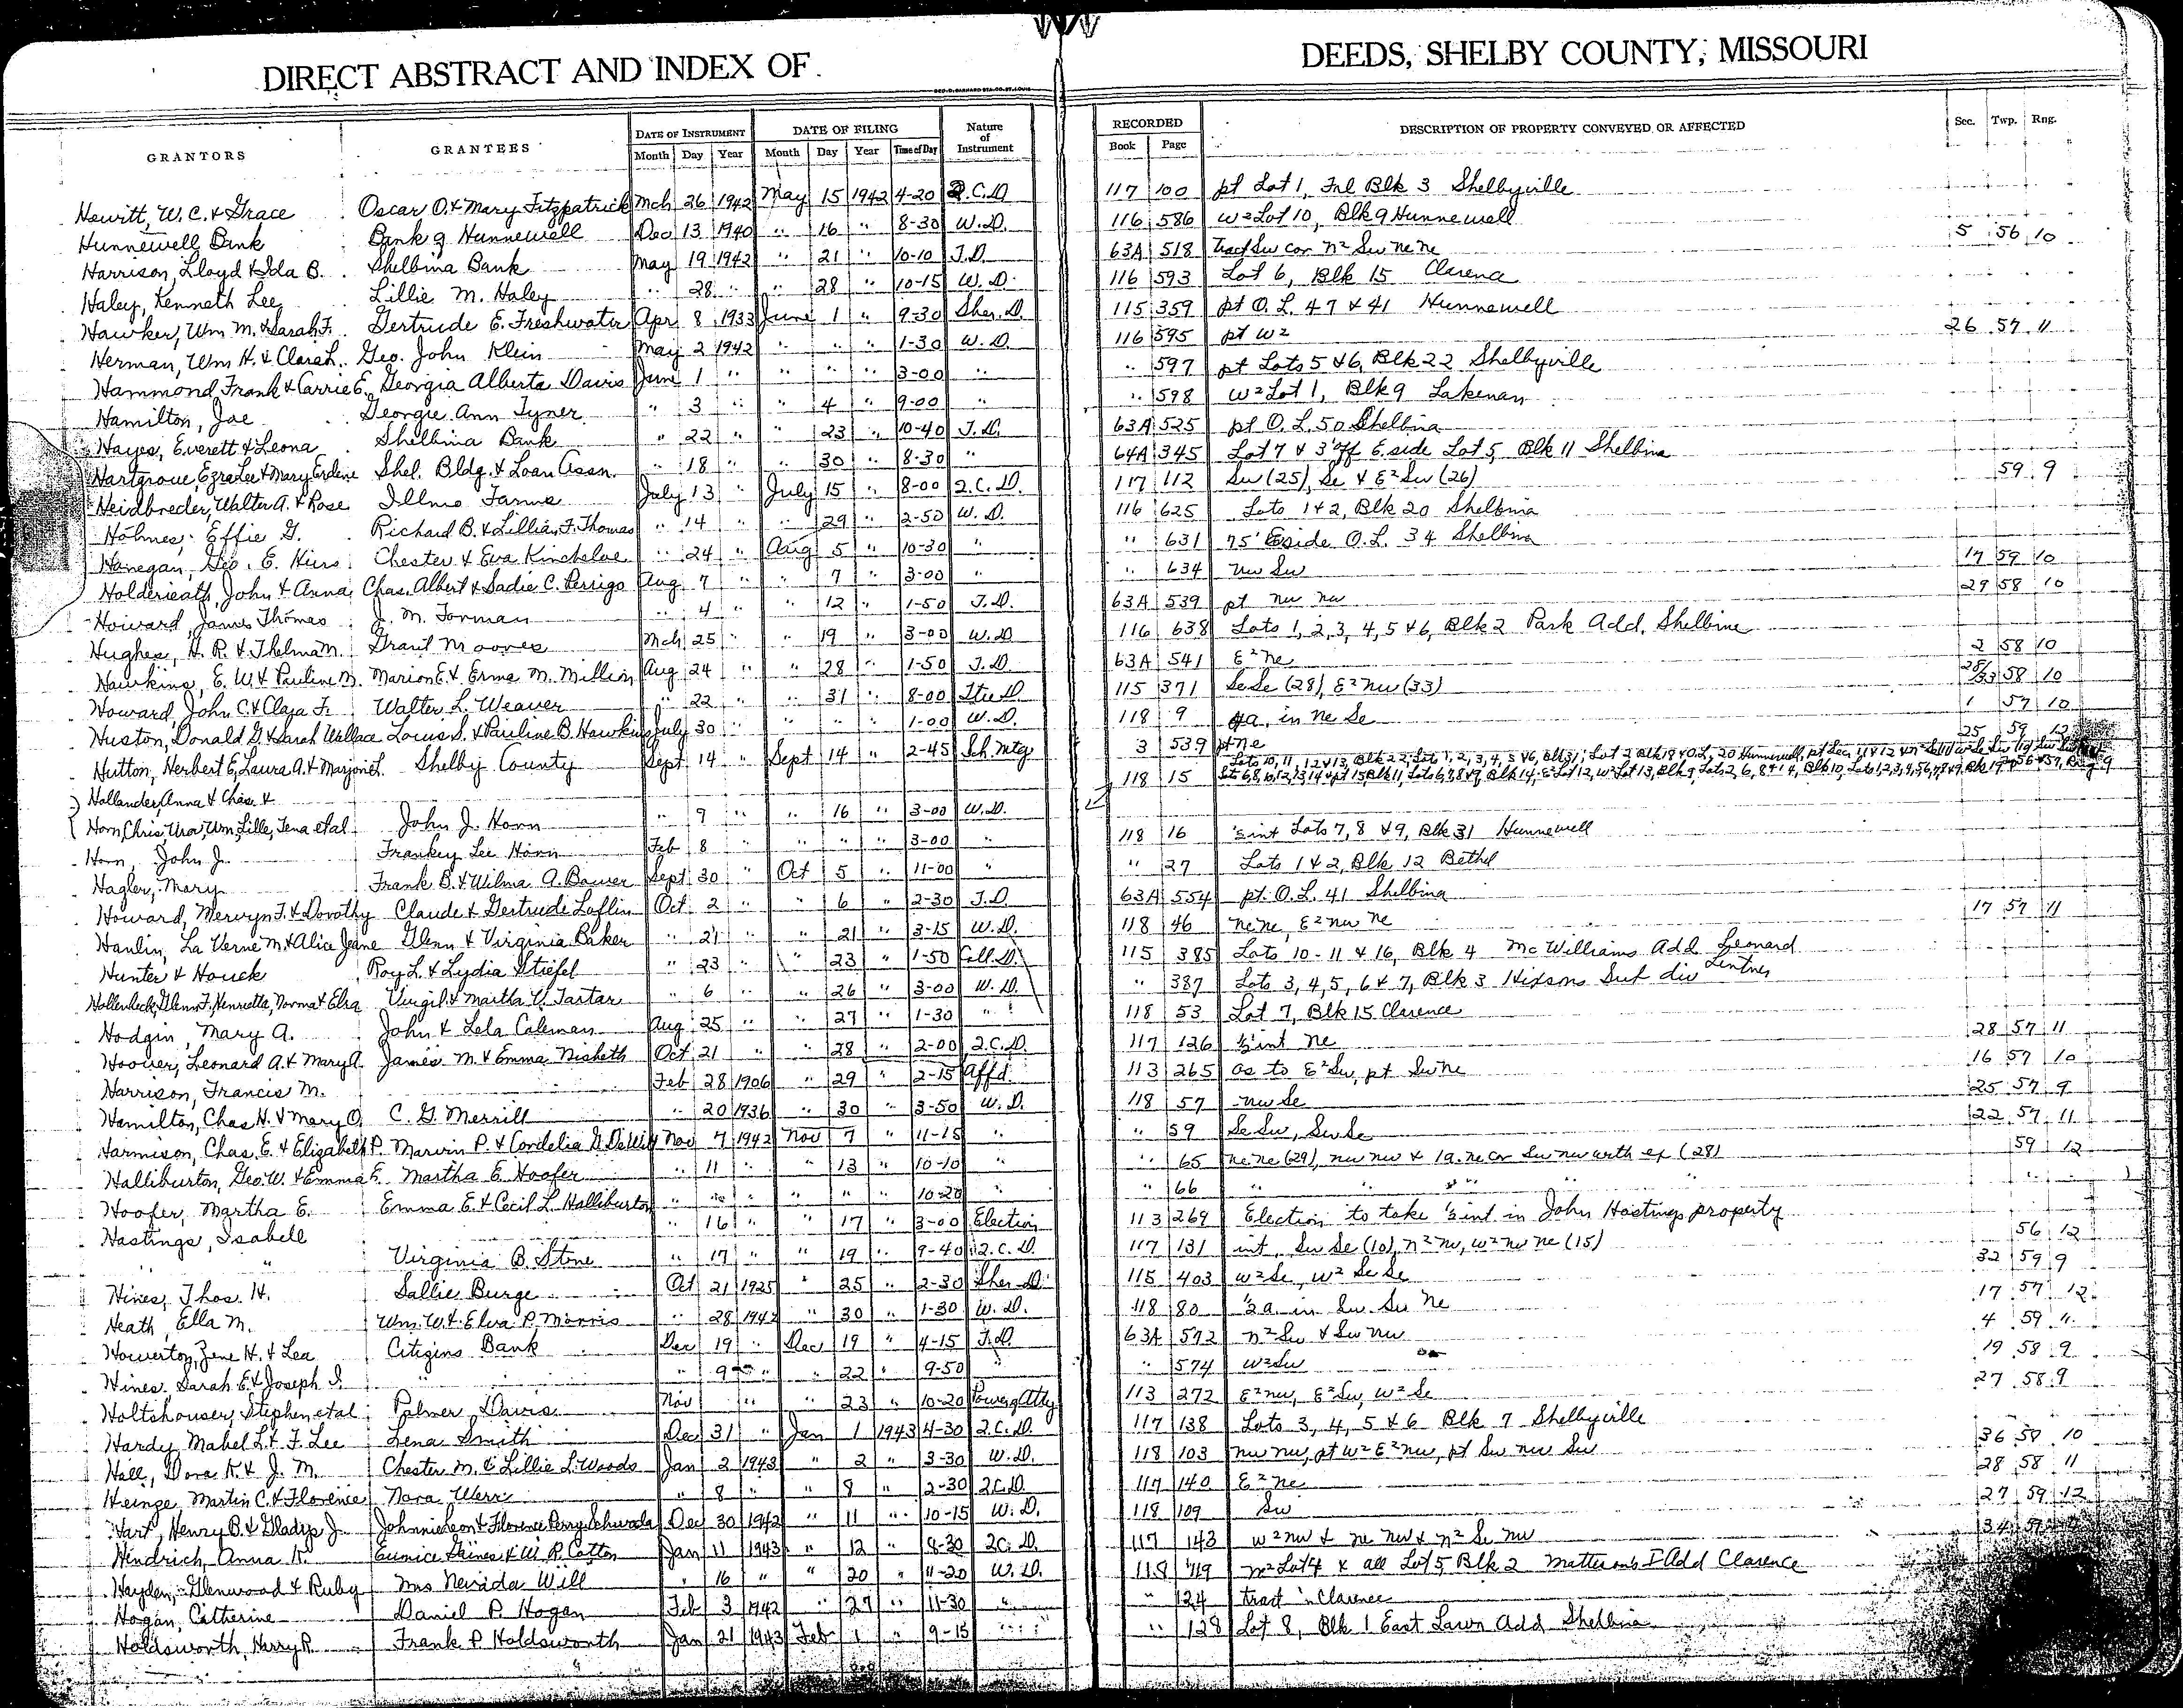 DIRECT ABSTRACT AND INDEX OF DEEDS, SHELBY COUNTY, MISSOURI
GRANTORS GRANTEES DATE OF INSTRUMENT DATE OF FILING Nature of Instrument RECORDED DESCRIPTION OF PROPERTY CONVEYED OR AFFECTED Sec. Twp. Rng.
Month Day Year Month Day Year Time of Day Book Page
Hewitt, W. C. & Grace Oscar O. & Mary Fitzpatrick Mch 26 1942 May 15 1942 4-20 Q.C.D 117 100 pt Lot 1, Frl Blk 3 Shelbyville
Hunnewell Bank Bank of Hunnewell Dec 13 1940 " 16 " 8-30 W.D. 116 586 W² Lot 10, Blk 9 Hunnewell
Harrison, Lloyd & Ida B. Shelbina Bank May 19 1942 " 21 " 10-10 T.D. 63A 518 tract Sw cor N² Sw Ne Ne 5 56 10
Haley, Kenneth Lee Lillie M. Haley " 28 " " 28 " 10-15 W.D. 116 593 Lot 6, Blk 15 Clarence
Hawker, Wm M. & Sarah F. Gertrude E. Freshwater Apr 8 1933 June 1 " 9-30 Sher. D. 115 359 pt O.L. 47 & 41 Hunnewell
Herman, Wm H. & Clara L. Geo. John Klein May 2 1942 " " " 1-30 W.D. 116 595 pt W² 26 57 11
Hammond, Frank & Carrie E. Georgia Alberta Davis June 1 " " " " 3-00 " " 597 pt Lots 5 & 6, Blk 22 Shelbyville
Hamilton, Joe Georgie Ann Tyner " 3 " " 4 " 9-00 " " 598 W² Lot 1, Blk 9 Lakenan
Hayes, Everett & Leona Shelbina Bank " 22 " " 23 " 10-40 T.D. 63A 525 pt O.L. 50 Shelbina
Hartgrove, Ezra Lee & Mary Erdene Shel. Bldg. & Loan Assn. " 18 " " 30 " 8-30 " 64A 345 Lot 7 & 3' off E. side Lot 5, Blk 11 Shelbina
Heidbreder, Walter A. & Rose Illmo Farms July 13 " July 15 " 8-00 Q.C.D. 117 112 Sw (25), Se & E² Sw (26) 59 9
Holmes, Effie G. Richard B. & Lillian F. Thomas " 14 " " 29 " 2-50 W.D. 116 625 Lots 1 & 2, Blk 20 Shelbina
Hanegan, Geo. E. Hirs Chester & Eva Kincheloe " 24 " Aug 5 " 10-30 " " 631 75' E side O.L. 34 Shelbina
Holderieath, John & Anna Chas. Albert & Sadie C. Perrigo Aug 7 " " 7 " 3-00 " " 634 Nw Sw 17 59 10
Howard, James Thomas J. M. Forman " 4 " " 12 " 1-50 T.D. 63A 539 pt Nw Nw 29 58 10
Hughes, H. R. & Thelma M. Grant Moores Mch 25 " " 19 " 3-00 W.D. 116 638 Lots 1, 2, 3, 4, 5 & 6, Blk 2 Park Add. Shelbina
Hawkins, E. W. & Pauline M. Marion E. & Erma M. Million Aug 24 " " 28 " 1-50 T.D. 63A 541 E² Ne 2 58 10
Howard, John C. & Clara F. Walter L. Weaver " 22 " " 31 " 8-00 Stee D. 115 371 Se Se (28), E² Nw (33) 28/33 58 10
Huston, Donald G. & Sarah Wallace Louis S. & Pauline B. Hawkins July 30 " " " " 1-00 W.D. 118 9 a. in Ne Se 1 57 10
Hutton, Herbert E, Laura A. & Marjorie L. Shelby County Sept 14 " Sept 14 " 2-45 Sch. Mtg 3 539 pt Ne 25 59 12
Hollander, Anna & Chas. &
Horn, Chris, Ura, Wm, Lille, Tena et al John J. Horn " 9 " " 16 " 3-00 W.D. 118 15 Lots 10, 11, 12 & 13, Blk 22, Lots 1, 2, 3, 4, 5 & 6, Blk 31, Lot 2 Blk 18 & O.L. 20 Hunnewell
Horn, John J. Frankey Lee Horn Feb 8 " " " " 3-00 " 118 16 int Lots 7, 8 & 9, Blk 31 Hunnewell
Hagler, Mary Frank B. & Wilma A. Bauer Sept 30 " Oct 5 " 11-00 " " 27 Lots 1 & 2, Blk 12 Bethel
Howard, Mervyn F. & Dorothy Claude & Gertrude Laflin Oct 2 " " 6 " 2-30 T.D. 63A 554 pt. O.L. 41 Shelbina
Hanlin, La Verne M. & Alice Jeane Glenn & Virginia Baker " 21 " " 21 " 3-15 W.D. 118 46 Ne Ne, E² Nw Ne 17 57 11
Hunter & Houck Roy L. & Lydia Stiefel " 23 " " 23 " 1-50 Coll. D. 115 385 Lots 10-11 & 16, Blk 4 McWilliams Add Leonard
Hollenbeck, Glenn F., Henrietta, Norma & Elra Virgil & Martha V. Tartar " 6 " " 26 " 3-00 W.D. " 387 Lots 3, 4, 5, 6 & 7, Blk 3 Hixsons Sub div Lentner
Hodgin, Mary A. John & Lela Coleman Aug 25 " " 27 " 1-30 " 118 53 Lot 7, Blk 15 Clarence
Hoover, Leonard A. & Mary A James M. & Emma Nisbeth Oct 21 " " 28 " 2-00 Q.C.D. 117 126 int Ne 28 57 11
Harrison, Francis M. Feb 28 1906 " 29 " 2-15 Affd. 113 265 as to E² Sw, pt Sw Ne 16 57 10
Hamilton, Chas H. & Mary O. C. G. Merrill " 20 1936 " 30 " 3-50 W.D. 118 57 Nw Se 25 57 9
Harmison, Chas. E. & Elizabeth P. Marvin P. & Cordelia G. DeWitt Nov 7 1942 Nov 7 " 11-15 " " 59 Se Sw, Sw Se 22 57 11
Halliburton, Geo. W. & Emma E. Martha E. Hoofer " 11 " " 13 " 10-10 " " 65 Ne Ne (29), Nw Nw & 1a. Ne cor Sw Nw with ex (28) 59 12
Hoofer, Martha E. Emma E. & Cecil L. Halliburton " " " " " " 10-20 " " 66 " " " "
Hastings, Isabell " 16 " " 17 " 3-00 Election 113 269 Election to take int in John Hastings property
" " Virginia B. Stone " 17 " " 19 " 9-40 Q.C.D. 117 131 int, Sw Se (10), N² Nw, W² Nw Ne (15) 56 12
Hines, Thos. H. Sallie Burge Oct 21 1925 " 25 " 2-30 Sher. D. 115 403 W² Se, W² Se Se 32 59 9
Heath, Ella M. Wm. W. & Elva P. Morris " 28 1942 " 30 " 1-30 W.D. 118 80 a. in Sw Sw Ne 17 57 12
Howerton, Zene H. & Lea Citizens Bank Dec 19 " Dec 19 " 4-15 T.D. 63A 572 N² Sw & Sw Nw 4 59 11
Hines, Sarah E. & Joseph I. " " 9 " " 22 " 9-50 " " 574 W² Sw 19 58 9
Holtshouser, Stephen et al Palmer Davis Nov " " 23 " 10-20 Power of Atty 113 272 E² Nw, E² Sw, W² Se 27 58 9
Hardy, Mabel L. & F. Lee Lena Smith Dec 31 " Jan 1 1943 4-30 Q.C.D. 117 138 Lots 3, 4, 5 & 6 Blk 7 Shelbyville
Hall, Dora K. & J. M. Chester M. & Lillie L. Woods Jan 2 1943 " 2 " 3-30 W.D. 118 103 Nw Nw, pt W² E² Nw, pt Sw Nw Sw 36 58 10
Heinze, Martin C. & Florence Nora Werr " 8 " " 8 " 2-30 Q.C.D. 117 140 E² Ne 28 58 11
Hart, Henry B. & Gladys J. Johnnie Leon & Florence Perry Schwada Dec 30 1942 " 11 " 10-15 W.D. 118 109 Sw 27 59 12
Hindrich, Anna K. Eunice Gaines & W. R. Cotton Jan 11 1943 " 12 " 8-30 Q.C.D. 117 143 W² Nw & Ne Nw & N² Se Nw 34 59
Hayden, Glenwood & Ruby Mrs Nevada Will " 16 " " 20 " 11-20 W.D. 118 119 N² Lot 4 & all Lot 5 Blk 2 Matterson's I Add Clarence
Hogan, Catherine Daniel P. Hogan Feb 3 1942 " 27 " 11-30 " " 124 tract in Clarence
Holdsworth, Harry R. Frank P Holdsworth Jan 21 1943 Feb 1 " 9-15 " " 128 Lot 8, Blk 1 East Lawn Add Shelbina